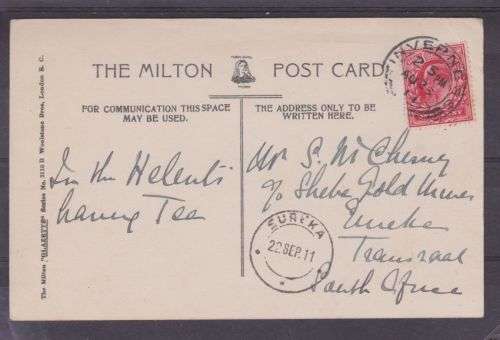 THE MILTON POST CARD
FOR COMMUNICATION THIS SPACE
MAY BE USED.
THE ADDRESS ONLY TO BE
WRITTEN HERE.
The Milton "GLAZETTE" Series No. Woolstone Bros, London E. C.
INVERNESS
In the
having Tea
Mr S. McChesney
c/o Sheba Gold Mines
Eureka
Transvaal
South Africa
EUREKA
22 SEP. 11